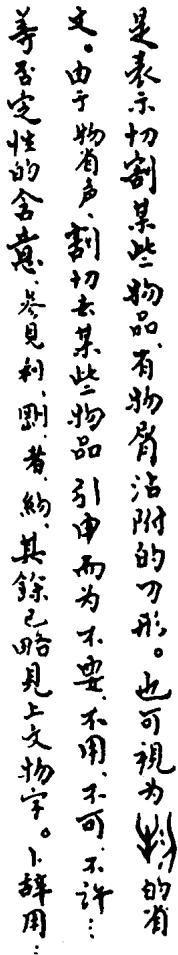 是表示切割某些物品、有物屑沾附的刀形。也可視为的省
文。由于物省声、割切去某些物品引申而为不要、不用、不可、不許…
等否定性的含意、参見利、㓞、者、約、其餘已略見上文物字。卜辞用…